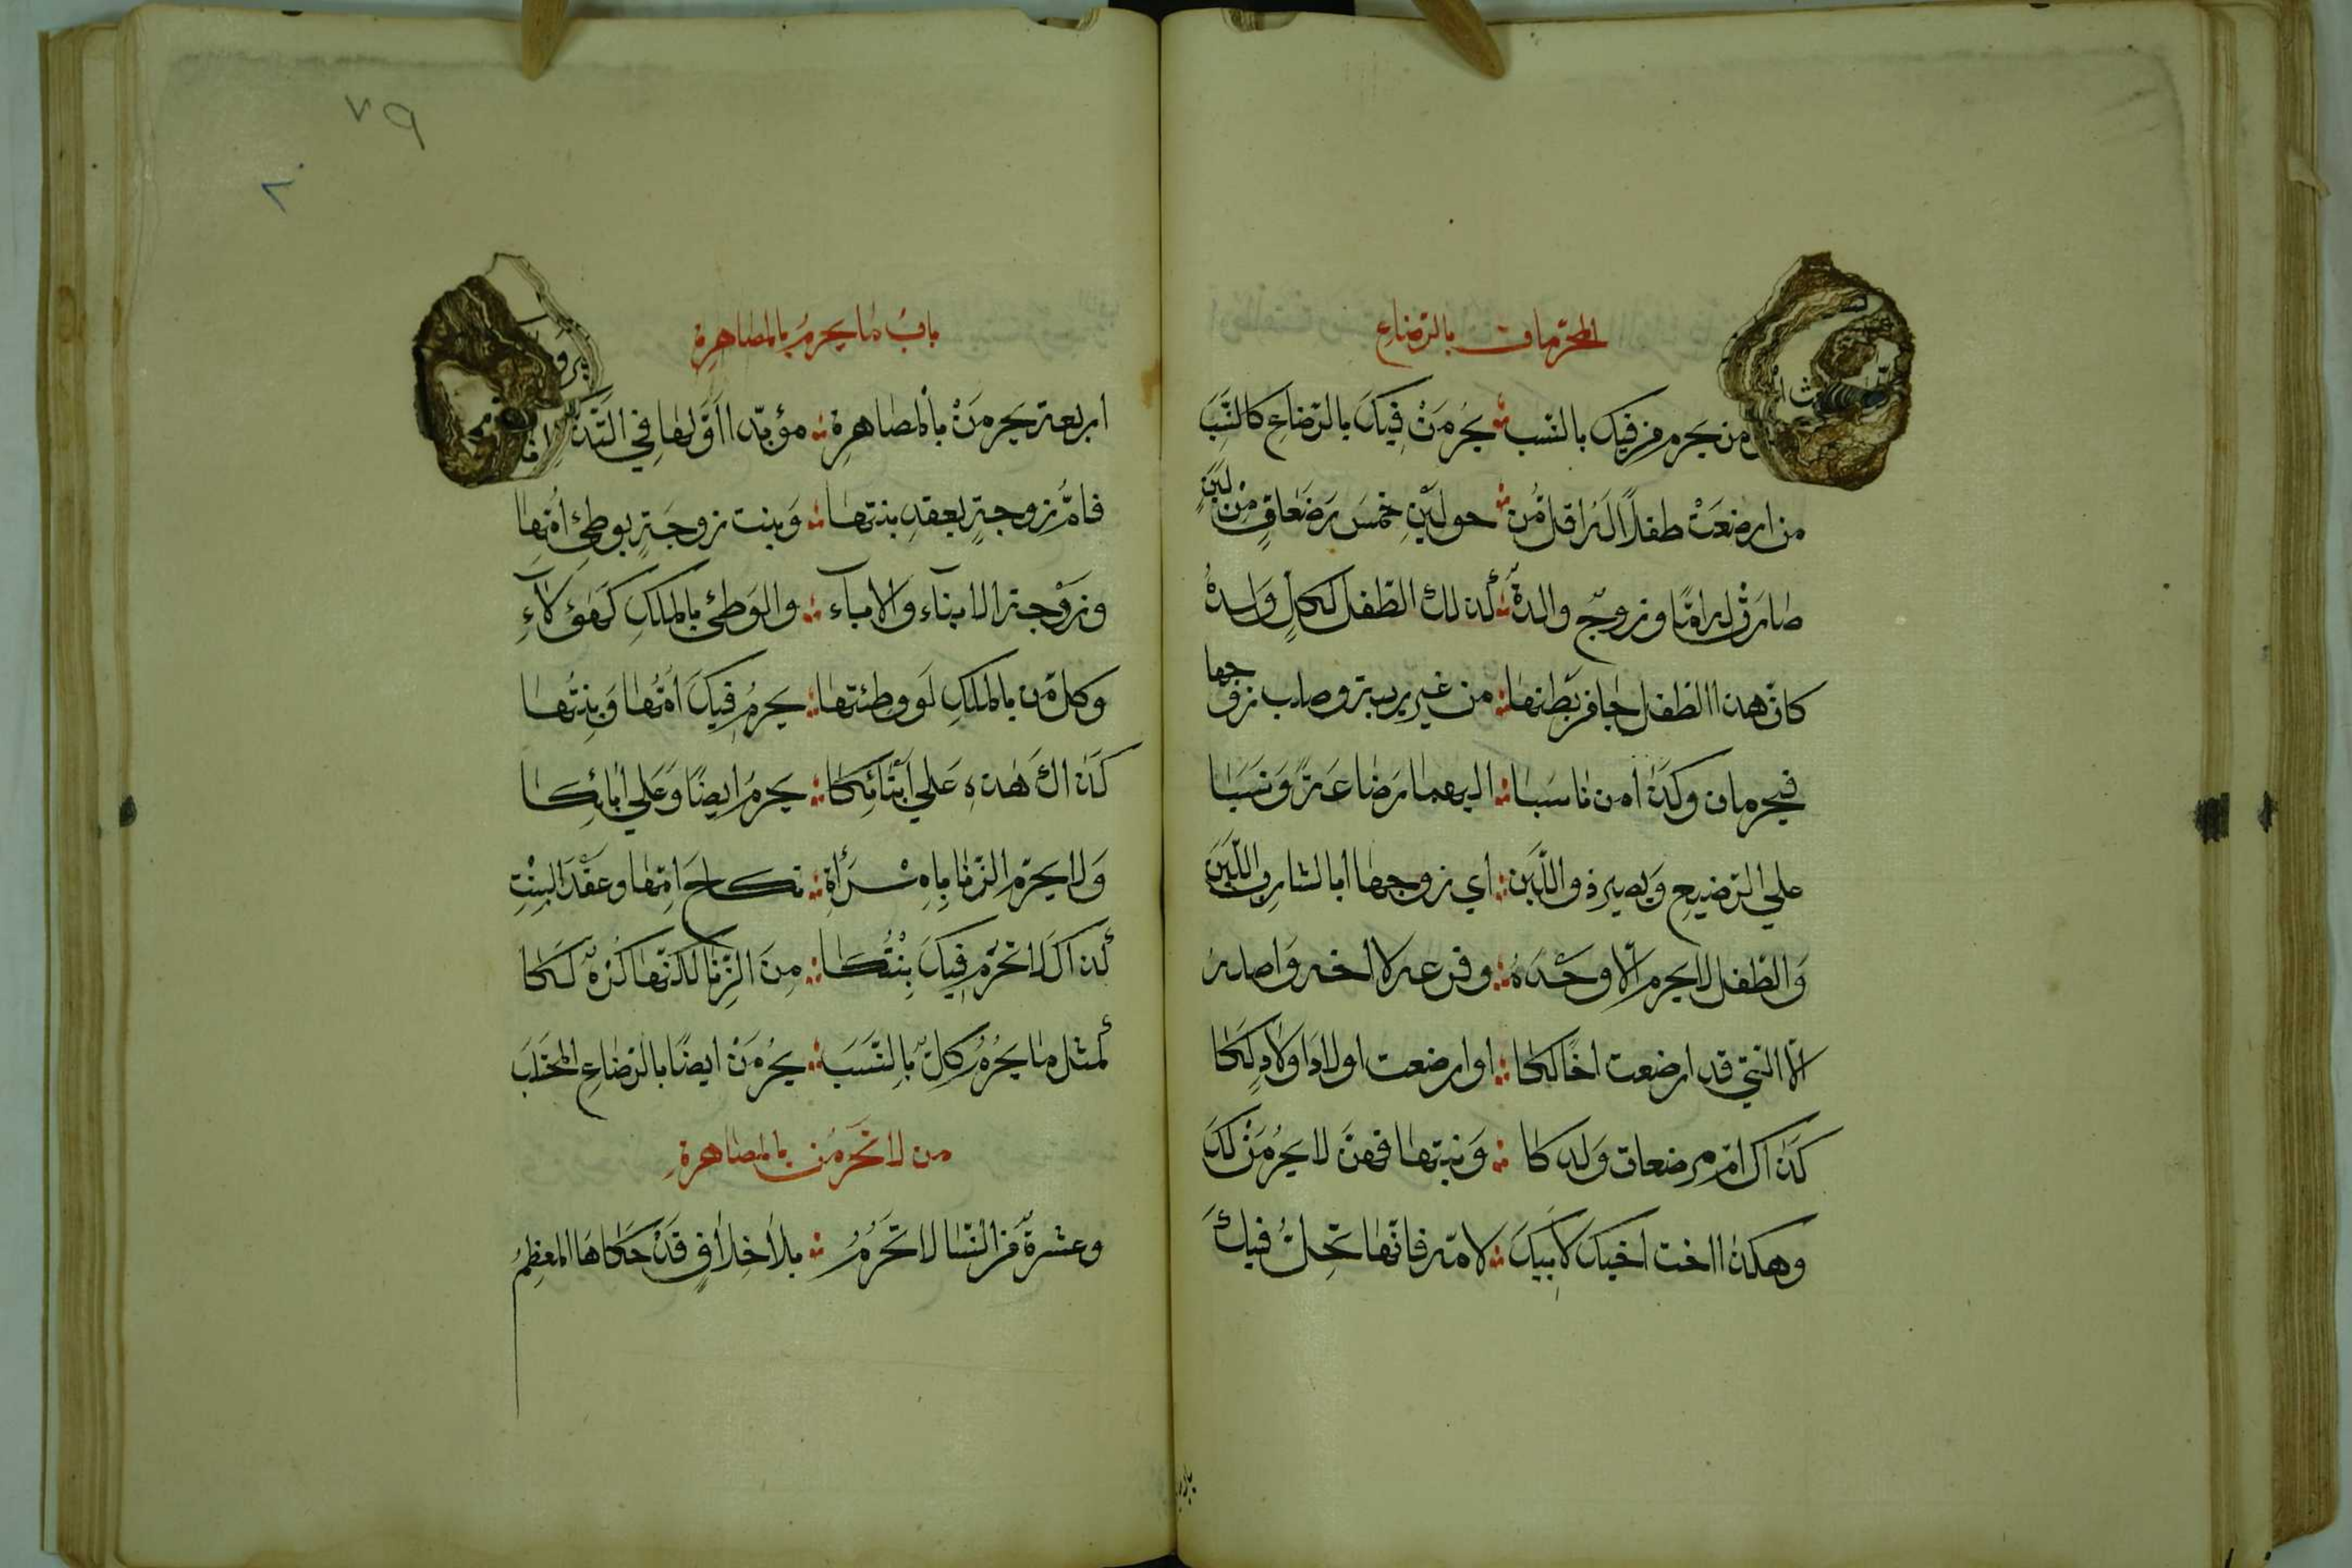 المحرّمات بالرّضاعِ
من يحرم من فيك بالنّسب يَحْرُمَنْ فِيكَ بالرّضاعِ كالنّسَبَ
من ارضَعَتْ طفلاً لَهُ اقل مُن حولَيْنِ خمسَ رَضَعاتٍ مِنْ لَبَنٍ
صارتْ له امًّا وزوجٌ والدهْ كذلك الطّفل لكلٍ وَلدُهْ
كان هذا الطفل جا من بَطنها من غير ريبة وصلب زوجها
فيحرمان وكذا من ناسَبا اليهما رَضاعَةً وَنَسَبَا
علي الرّضيع وَيصير ذو اللّبَن اي زوجها ابا لشارب اللَّبَنَ
وَالطّفل لا يحرم الّا وَحْدَهُ وفرعه لا اخه واصله
الّا التي قد ارضعت اخًا لكا او ارضعت اولادَ اولادٍ لَكا
كَذاك امّ مرضعات وَلدكا وَبنتها فهنّ لا يحرُمنْ لَكَ
وهكذا اخت اخيك لاَبِيكَ لامّه فانّها تَحِلُّ فيكَ
بابُ ما يحرمُ بالمصاهرة
اربعة يحرمَنْ بالمصاهرة مؤبّدا اوّلها في
فامّ زوجةٍ بعقدِ بنتها وَبنت زوجَةٍ بوطئِ اُمّها
وزَوْجة الابناء والاباء والوَطئ بالملكِ كهؤلآءِ
وكل من بالملكِ لَو وطئتها يحرمُ فيكَ اُمّها وَبِنتُها
كَذاك هذه عَلي اَبْنَائِكا يحرمُ ايضًا وَعَلي اٰبائِكا
وَلا يحرّم الزّنا بِامْرَأةِ نكاح امّها وعَقْدَ البِنْتِ
كذاك لا تحْرُم فِيكَ بِنْتُكا مِنَ الزِّنا لكنّها كُرهٌ لَكا
كمثل ما يحرُمُ كلّ بِالنَّسَبَ يَحْرُمَنْ ايضًا بالرّضاعِ المجتلَبَ
من لا تَحْرُمُن بالمصاهرة
وعشرةٌ من النّسا لا تَحْرُمُ بلا خِلافٍ قَدْ حكاها المعظمُ